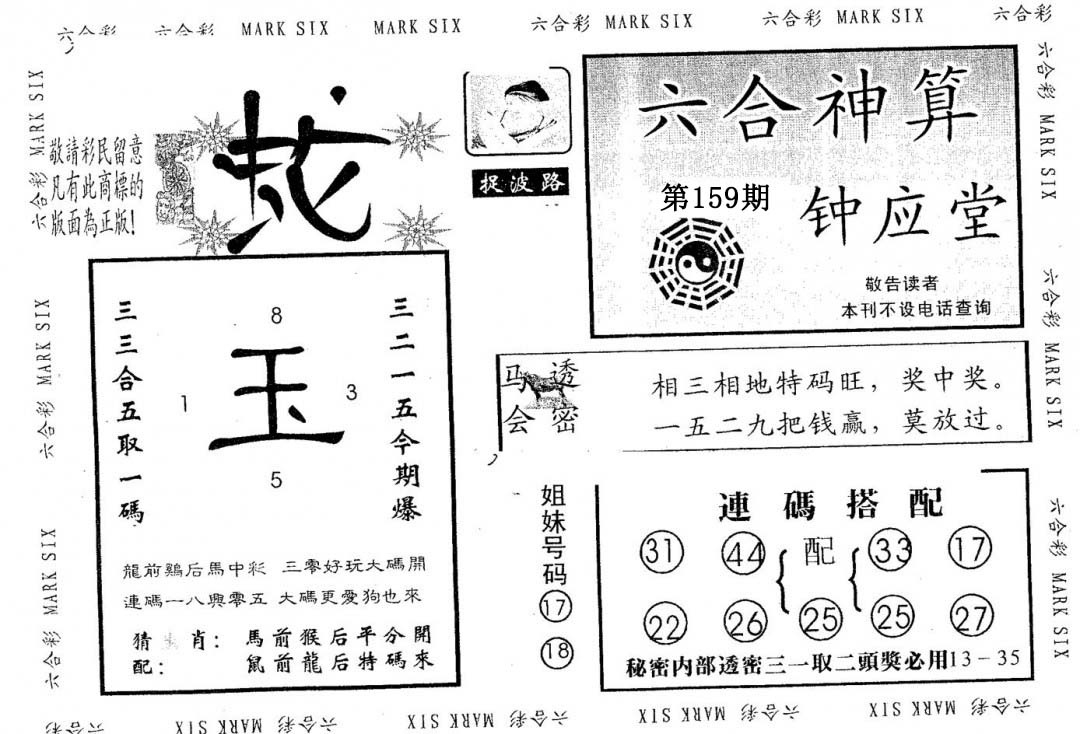 六合彩 六合彩 MARK SIX MARK SIX 六合彩 MARK SIX 六合彩 MARK SIX 六合彩
六合彩 MARK SIX
敬請彩民留意
凡有此商標的
版面為正版!
蛇
捉波路
六合神算
第159期
钟应堂
敬告读者
本刊不设电话查询
六合彩 MARK SIX
六合彩 MARK SIX
六合彩 MARK SIX
三三合五取一碼
8
1
玉
3
5
三二一五今期爆
龍前鷄后馬中彩 三零好玩大碼開
連碼一八興零五 大碼更愛狗也來
猜 肖: 馬前猴后平分開
配: 鼠前龍后特碼來
马会
透密
相三相地特码旺, 奖中奖。
一五二九把钱赢, 莫放过。
姐妹号码
17
18
連碼搭配
31 44 { 配 { 33 17
22 26 25 25 27
秘密内部透密三一取二頭獎必用13-35
六合彩 MARK SIX
六合彩 MARK SIX
六合彩 MARK SIX
六合彩 MARK SIX 六合彩 MARK SIX 六合彩 MARK SIX 六合彩 MARK SIX 六合彩